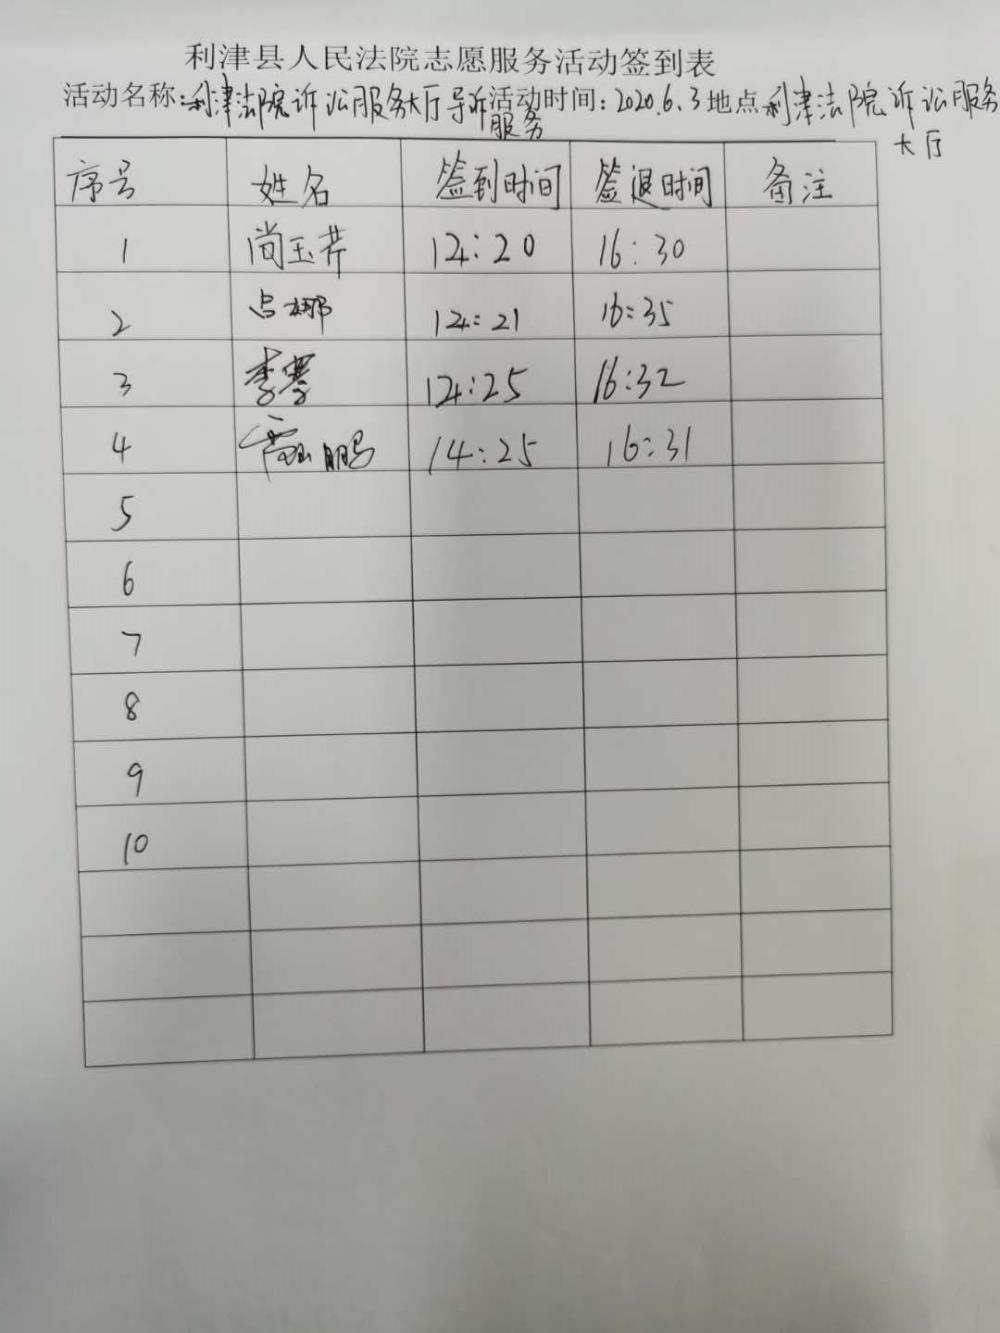 利津县人民法院志愿服务活动签到表
活动名称:利津法院诉讼服务大厅导诉服务 活动时间:2020.6.3 地点 利津法院诉讼服务大厅
序号 姓名 签到时间 签退时间 备注
1 尚玉芹 12:20 16:30
2 娜 12:21 16:35
3 李 12:25 16:32
4 鹏 14:25 16:31
5
6
7
8
9
10